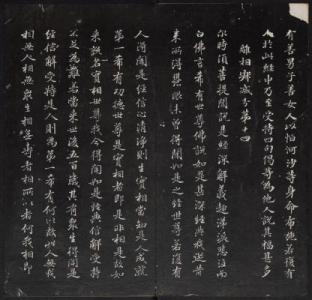 善男子善女人以恒河沙等身命布施若復有
人於此經中乃至受持四句偈等為他人說其福甚多
離相寂滅分第十四
爾時須菩提聞說是經深解義趣涕淚悲泣而
白佛言希有世尊佛說如是甚深經典我從昔
來所得慧眼未曾得聞如是之經世尊若復有
人得聞是經信心清淨則生實相當知是人成就
第一希有功德世尊是實相者即是非相是故如
來說名實相世尊我今得聞如是經典信解受持
不足為難若當來世後五百歲其有眾生得聞是
經信解受持是人則為第一希有何以故此人無我
相無人相無眾生相無壽者相所以者何我相即